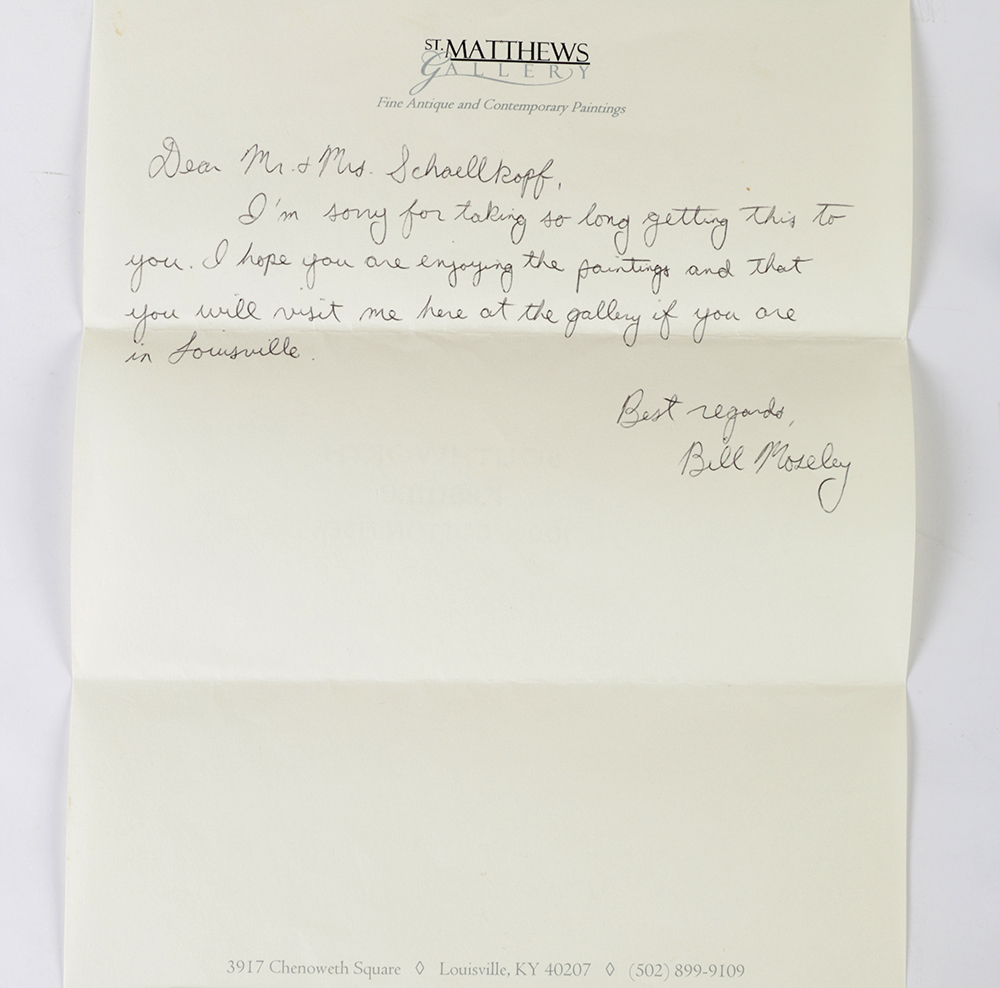 ST. MATTHEWS
GALLERY
Fine Antique and Contemporary Paintings
Dear Mr. & Mrs. Schaellkopf,
I'm sorry for taking so long getting this to
you. I hope you are enjoying the paintings and that
you will visit me here at the gallery if you are
in Louisville.
Best regards,
Bill Moseley
3917 Chenoweth Square ◊ Louisville, KY 40207 ◊ (502) 899-9109